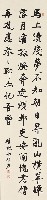 馬上續殘夢不知朝日昇亂山橫翠
嶂落月澹孤燈奔走煩郵吏安閒愧老僧
再遊應眷眷聊亦記吾曾